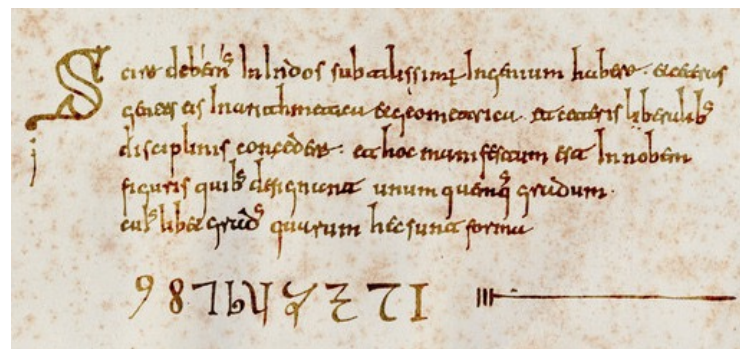 Scire debem᾽ In Indos subtilissimū Ingenium habere · et ceteras
gentes eis In arithmetica et geometrica · et ceteris liberalib᾽
disciplinis concedere · et hoc manifestum est In nobem
figuris quib᾽ designant unum quemq᾽ gradum ·
cui᾽libet grad᾽ quarum hec sunt forma
9 8 7 6 5 4 3 2 1